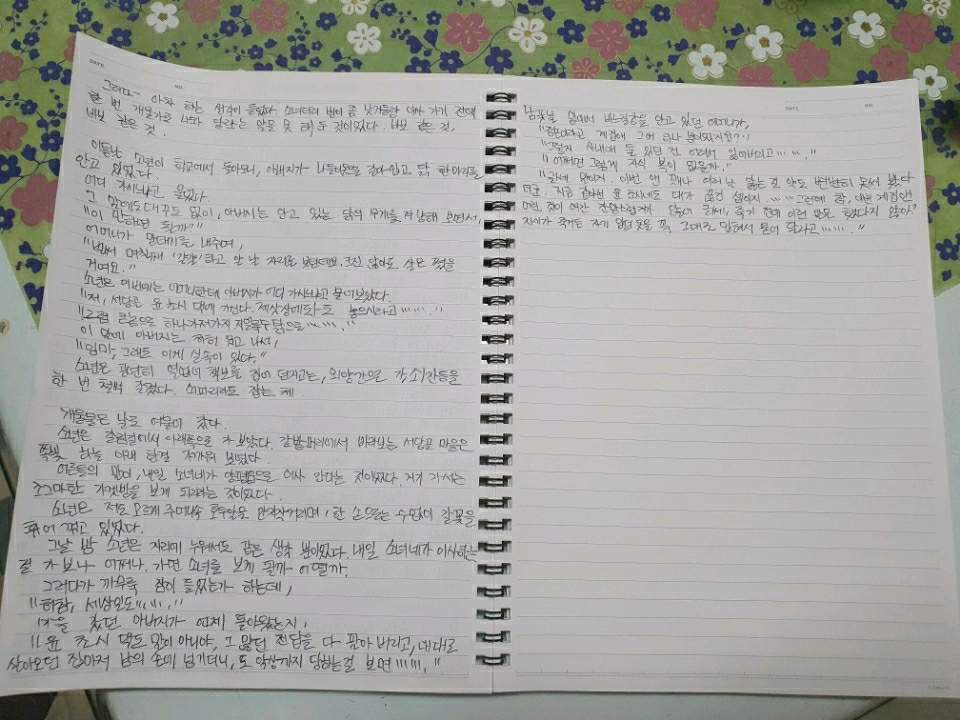 그러다 아차 하는 생각이 들었다. 소녀더러 병이 좀 낫거들랑 이사 가기 전에
한 번 개울가로 나와 달라는 말을 못 해 둔 것이었다. 바보 같은 것,
바보 같은 것.
이튿날, 소년이 학교에서 돌아오니, 아버지가 나들이옷으로 갈아입고 닭 한 마리를
안고 있었다.
어디 가시냐고 물었다.
그 말에도 대꾸도 없이, 아버지는 안고 있는 닭의 무게를 겨냥해 보면서,
"이 만하면 될까?"
어머니가 망태기를 내주며,
"벌써 며칠째 '걀걀'하고 알 날 자리를 보던데요. 크진 않아도 살은 쪘을
거여요."
소년은 이번에는 어머니한테 아버지가 어디 가시냐고 물어보았다.
"저, 서당골 윤 초시 댁에 가신다. 제삿상에라도 놓으시라고……."
"그럼 큰놈으로 하나 가져가지. 저 얼룩수탉으로……."
이 말에 아버지는 허허 웃고 나서,
"임마, 그래도 이게 실속이 있다."
소년은 공연히 열없어 책보를 집어 던지고는, 외양간으로 가, 쇠잔등을
한 번 철썩 갈겼다. 쇠파리라도 잡는 체
개울물은 날로 여물어 갔다.
소년은 갈림길에서 아래쪽으로 가 보았다. 갈밭머리에서 바라보는 서당골 마을은
쪽빛 하늘 아래 한결 가까워 보였다.
어른들의 말이, 내일 소녀네가 양평읍으로 이사 간다는 것이었다. 거기 가서는
조그마한 가겟방을 보게 되리라는 것이었다.
소년은 저도 모르게 주머니 속 호두알을 만지작거리며, 한 손으로는 수없이 갈꽃을
휘어 꺾고 있었다.
그날 밤 소년은 자리에 누워서도 같은 생각 뿐이었다. 내일 소녀네가 이사하는
걸 가 보나 어쩌나. 가면 소녀를 보게 될까 어떨까.
그러다가 까무룩 잠이 들었는가 하는데,
"허 참, 세상일도……."
마을 갔던 아버지가 언제 돌아왔는지,
"윤 초시 댁도 말이 아니야, 그 많던 전답을 다 팔아 버리고, 대대로
살아오던 집마저 남의 손에 넘기더니, 또 악상까지 당하는 걸 보면……."
남폿불 밑에서 바느질감을 안고 있던 어머니가,
"증손이라곤 계집애 그 애 하나뿐이었지요?"
"그렇지. 사내애 둘 있던 건 어려서 잃어버리고……."
"어쩌면 그렇게 자식 복이 없을까."
"글쎄 말이지. 이번 앤 꽤 여러 날 앓는 걸 약도 변변히 못 써 봤다
더군. 지금 같아선 윤 초시네도 대가 끊긴 셈이지.……그런데 참, 이번 계집앤
어린 것이 여간 잔망스럽지가 않아. 글쎄, 죽기 전에 이런 말을 했다지 않아?
자기가 죽거든 자기 입던 옷을 꼭 그대로 입혀서 묻어 달라고……."